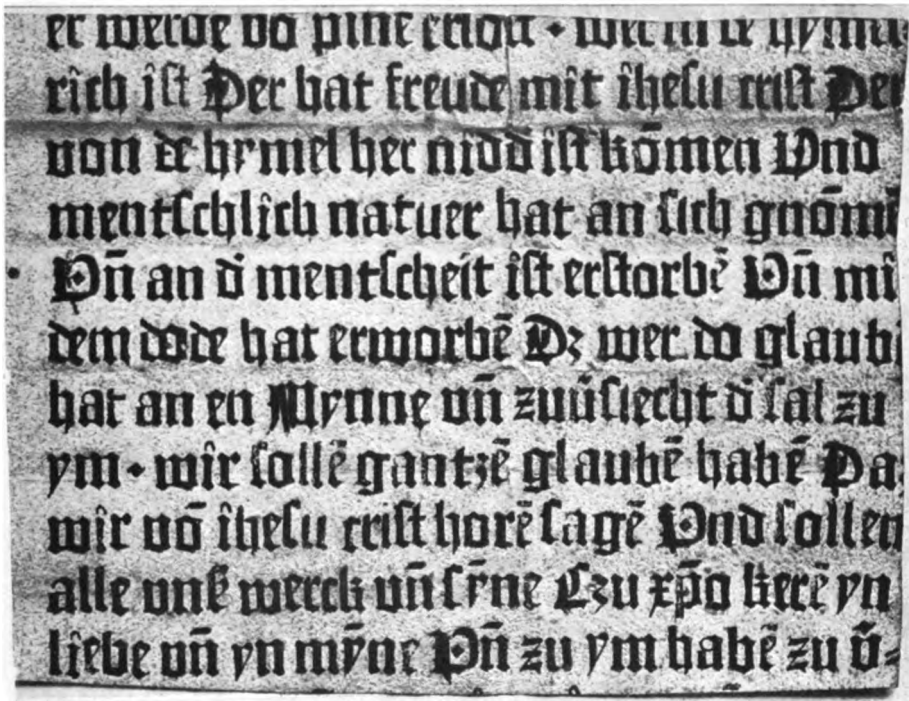 er werde vō pine erlost · wer in de hymel
rich ist Der hat freude mit ihesu crist Der
von dē hymel her nidd̄ ist kōmen Vnd
mentſchlich natuer hat an ſich gnōmē
Vn̄ an d̄ mentſcheit iſt erſtorbē Vn̄ mi
dem dode hat erworbē Dz wer do glaubē
hat an en Mynne vn̄ zuv̄ſiecht d̄ ſal zu
ym · wir ſollē gantzē glaubē habē Da
wir vō iheſu criſt horē ſagē Vnd ſollen
alle vnß werck vn̄ ſȳne Czu xp̄o kerē yn
liebe vn̄ yn mȳne Vn̄ zu ym habē zu v̄⸗